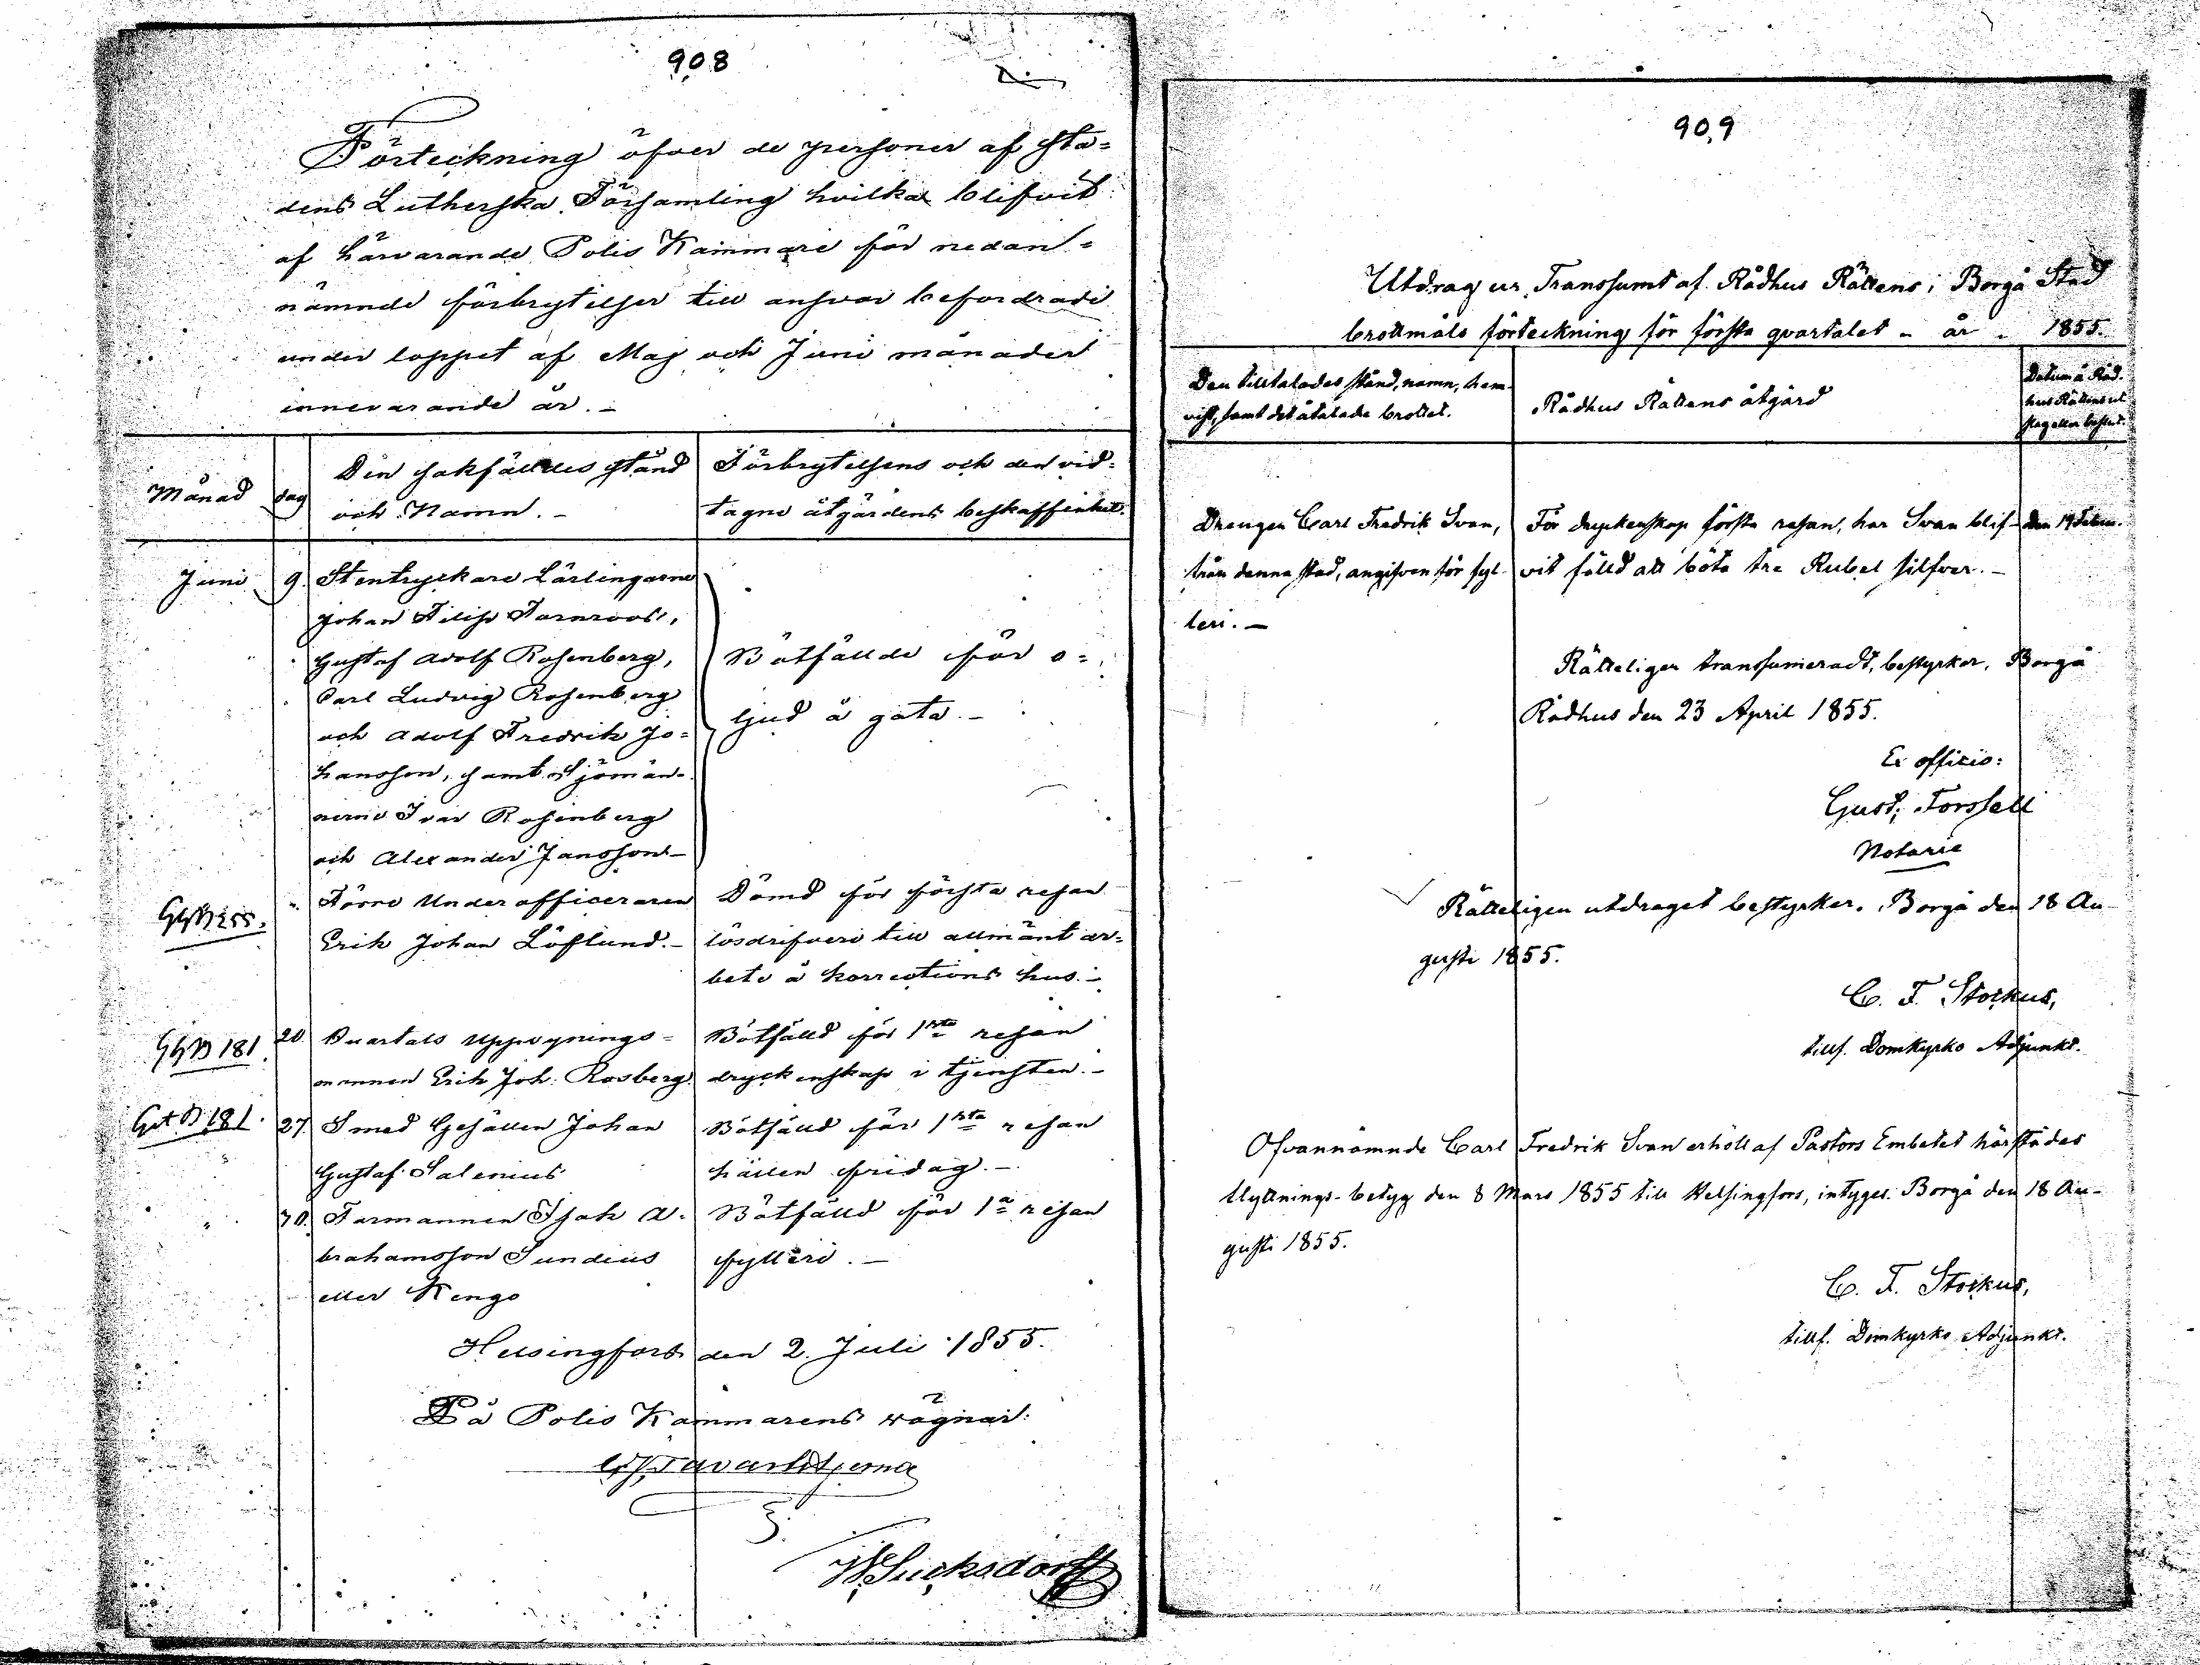 908
Förteckning öfver de personer af sta=
dens Lutherska Församling hvilka blifvit
af härvarande Polis Kammare för nedan=
nämnde förbrytelser till ansvar befordrade
under loppet af Maj och Juni månader
innevarande år.-
Månad
dag
Den sakfälldes stånd
och Namn.-
Förbrytelsens och den vid=
tagne åtgärdens beskaffenhet.
Juni
9.
Stentryckare Lärlingarne
Johan Filip Tarnroos,
Gustaf Adolf Rosenberg,
Carl Ludvig Rosenberg
och Adolf Fredrik Jo=
hansson, samt Sjömän-
nerne Ivar Rosenberg
och Alexander Jansson.-
Bötfällde för o=
ljud å gata.-
"
Förre Underofficeraren
Erik Johan Löflund.-
Dömd för första resan
lösdrifveri till allmänt ar=
bete å korrections hus.-
GgB 181.
20.
Quartals Uppsynings=
mannen Erik Joh. Rosberg.
Bötfälld för 1sta resan
dryckenskap i tjensten.-
Get.B.181.
27.
Smed Gesällen Johan
Gustaf Salenius
Bötfälld för 1sta resan
hållen fridag.-
30.
Formannen Isak A=
brahamsson Sundius
eller Kengo
Bötfälld för 1a resan
fylleri.-
Helsingfors den 2. Juli 1855.
På Polis Kammarens vägnar:
W Sucksdorff
909
Utdrag ur Transsumt af Rådhus Rättens i Borgå Stad
brottmåls förteckning för första qvartalet - år - 1855.
Den tilltalades stånd, namn, hem-
vist, samt det åtalade brottet.
Rådhus Rättens åtgärd
Datum å Råd-
hus Rättens ut
slag eller beslut.
Drengen Carl Fredrik Svan,
från denna stad, angifven för fyl-
leri.-
För dryckenskap första resan, har Svan blif-
vit fälld att böta tre Rubel silfver.-
den 19 Febru.
Rätteligen transumeradt, bestyrker, Borgå
Rådhus den 23 April 1855.
Ex officio:
Gust. Forssell
Notarie
Rätteligen utdraget bestyrker. Borgå den 18 Au-
gusti 1855.
C. F. Storkus,
tillf. Domkyrko Adjunkt.
Ofvannämnde Carl Fredrik Svan erhöll af Pastors Embetet härstädes
flyttnings-betyg den 8 Mars 1855 till Helsingfors, intygas. Borgå den 18 Au-
gusti 1855.
C. F. Storkus,
tillf. Domkyrko Adjunkt.